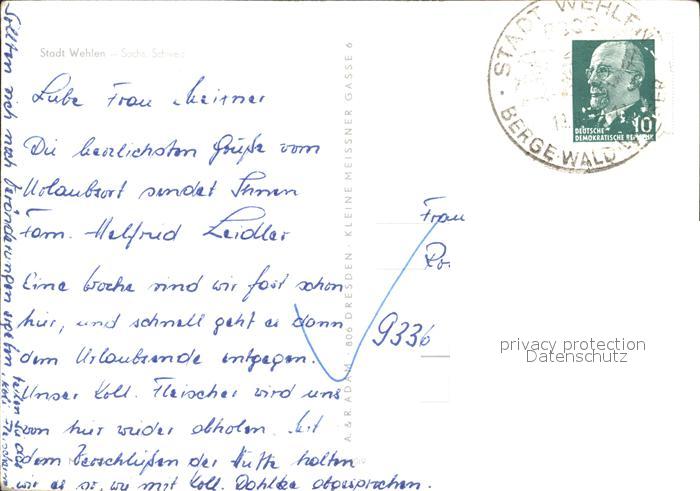 Stadt Wehlen – Sächs. Schweiz
Liebe Frau Meisner
Die herzlichsten Grüße vom
Urlaubsort sendet Ihnen
Fam. Helfried Leidler
Eine Woche sind wir fast schon
hier, und schnell geht es dann
dem Urlaubsende entgegen.
Unser Koll. Fleischer wird uns
von hier wieder abholen. Mit
dem Verschließen der Hütte halten
wir es so, wie mit Koll. abgesprochen.
Sollten sich noch Veränderungen ergeben,
teilen Sie
A. & R. ADAM · 806 DRESDEN · KLEINE MEISSNER GASSE 6
STADT WEHLEN
BERGE · WALD
DEUTSCHE
DEMOKRATISCHE REPUBLIK
10
Frau
9336
privacy protection
Datenschutz